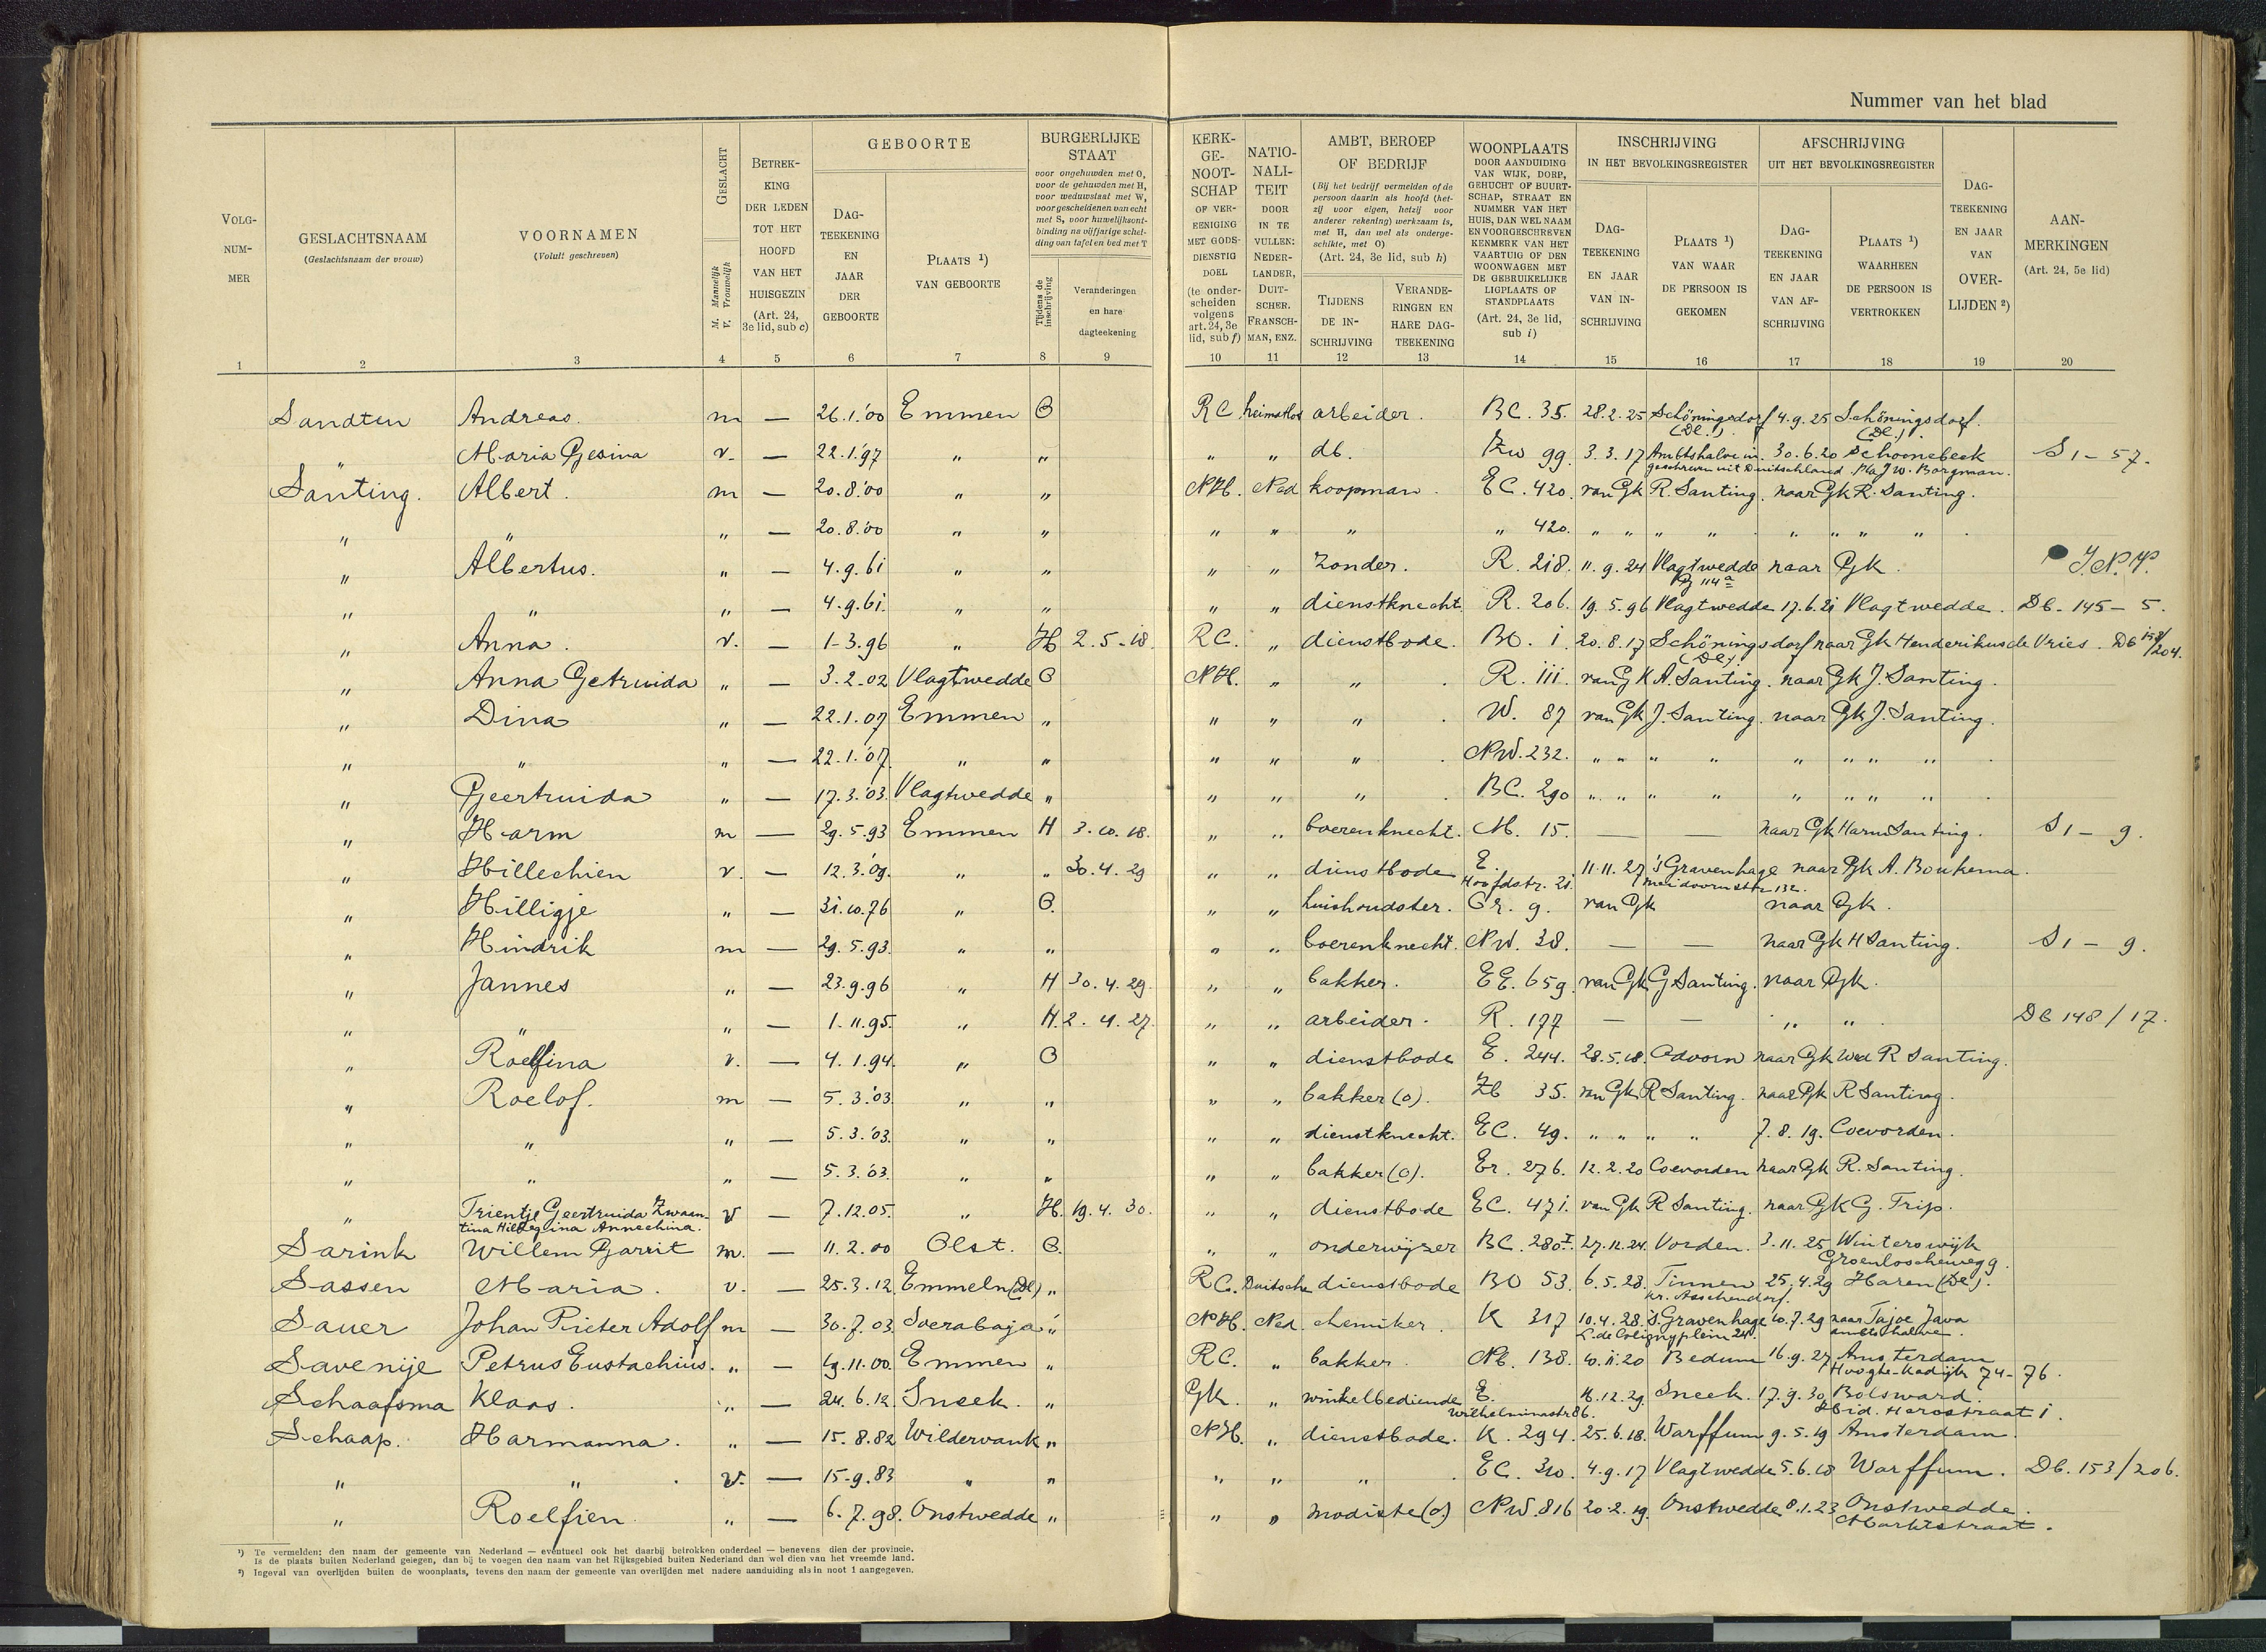 Nummer van het blad
VOLG-NUM-MER 1
GESLACHTSNAAM (Geslachtsnaam der vrouw) 2
VOORNAMEN (Voluit geschreven) 3
GESLACHT M. Mannelijk V. Vrouwelijk 4
BETREK-KING DER LEDEN TOT HET HOOFD VAN HET HUISGEZIN (Art. 24, 3e lid, sub c) 5
GEBOORTE
DAG-TEEKENING EN JAAR DER GEBOORTE 6
PLAATS ¹) VAN GEBOORTE 7
BURGERLIJKE STAAT
voor ongehuwden met O, voor de gehuwden met H, voor weduwstaat met W, voor gescheidenen van echt met S, voor huwelijksont-binding na vijfjarige schei-ding van tafel en bed met T
Tijdens de inschrijving 8
Veranderingen en hare dagteekening 9
KERK-GE-NOOT-SCHAP OF VER-EENIGING MET GODS-DIENSTIG DOEL (te onder-scheiden volgens art. 24, 3e lid, sub f) 10
NATIO-NALI-TEIT DOOR IN TE VULLEN: NEDER-LANDER, DUIT-SCHER, FRANSCH-MAN, ENZ. 11
AMBT, BEROEP OF BEDRIJF
(Bij het bedrijf vermelden of de persoon daarin als hoofd (het-zij voor eigen, hetzij voor anderer rekening) werkzaam is, met H, dan wel als onderge-schikte, met O) (Art. 24, 3e lid, sub h)
TIJDENS DE IN-SCHRIJVING 12
VERANDE-RINGEN EN HARE DAG-TEEKENING 13
WOONPLAATS DOOR AANDUIDING VAN WIJK, DORP, GEHUCHT OF BUURT-SCHAP, STRAAT EN NUMMER VAN HET HUIS, DAN WEL NAAM EN VOORGESCHREVEN KENMERK VAN HET VAARTUIG OF DEN WOONWAGEN MET DE GEBRUIKELIJKE LIGPLAATS OF STANDPLAATS (Art. 24, 3e lid, sub i) 14
INSCHRIJVING IN HET BEVOLKINGSREGISTER
DAG-TEEKENING EN JAAR VAN IN-SCHRIJVING 15
PLAATS ¹) VAN WAAR DE PERSOON IS GEKOMEN 16
AFSCHRIJVING UIT HET BEVOLKINGSREGISTER
DAG-TEEKENING EN JAAR VAN AF-SCHRIJVING 17
PLAATS ¹) WAARHEEN DE PERSOON IS VERTROKKEN 18
DAG-TEEKENING EN JAAR VAN OVER-LIJDEN ²) 19
AAN-MERKINGEN (Art. 24, 5e lid) 20
Sandten Andreas. m — 26.1.'00 Emmen O RC heimatlos arbeider. BC. 35. 28.2.25 Schöningsdorf (Dl.) 4.9.25 Schöningsdorf. (Dl.)
" Maria Gesina v. — 22.1.'97 " " " " db. Zw 99. 3.3.17 Ambtshalve in-geschreven uit Duitschland 30.6.20 Schoonebeek bij J.W. Borgman. S 1 - 57.
Santing. Albert. m — 20.8.'00 " " NH. Ned koopman. EC. 420. van Gk R. Santing. naar Gk R. Santing.
" " " — 20.8.'00 " " " " " " 420. " " " " " " " "
" Albertus. " — 4.9.61 " " " " Zonder. R. 218. 11.9.24 Vlagtwedde naar Gk. J.N.H.
" " " — 4.9.61. " " " " dienstknecht R. 206. 19.5.96 Vlagtwedde 17.6.21 Vlagtwedde. Db - 145 - 5.
" Anna. v. — 1-3.96 " H 2.5-18. RC. " dienstbode. BO. 1. 20.8.17 Schöningsdorf (Dl). naar Gk Henderikus de Vries. Db /204.
" Anna Getruida " — 3.2.02 Vlagtwedde O NH. " " R. 111. van Gk A. Santing. naar Gk J. Santing.
" Dina " — 22.1.07 Emmen " " " " W. 87 van Gk J. Santing. naar Gk J. Santing.
" " " — 22.1.'07. " " " " " NW. 232. " " " " " " " "
" Geertruida " — 17.3.'03. Vlagtwedde " " " " BC. 290 " " " " " " " "
" Harm m — 29.5.93 Emmen H 3.10.18. " " boerenknecht. M. 15. — — naar Gk Harm Santing. S 1 - 9.
" Hillechien v. — 12.3.'09. " " 30.4.29 " " dienstbode E. Hoofdstr. 21. 11.11.27 's Gravenhage Meidoornstr 132. naar Gk A. Boukema.
" Hilligje " — 31.10.76 " O. " " huishoudster. Or. 9. van Gk naar Gk.
" Hindrik m — 29.5.93. " " " " boerenknecht. NW. 38. — — naar Gk H Santing. S 1 - 9.
" Jannes " — 23.9.96 " H 30.4.29. " " bakker. EE. 659. van Gk G Santing. naar Gk.
" " " — 1.11.95. " H. 2.4.27. " " arbeider. R. 177 — — " " Db 148/17.
" Roelfina v. — 4.1.94. " O " " dienstbode E. 244. 28.5.18. Odoorn naar Gk wed R Santing.
" Roelof. m — 5.3.'03. " " " " bakker (o). Zb 35. van Gk R Santing. naar Gk R Santing.
" " " — 5.3.'03. " " " " dienstknecht. EC. 49. " " " " 7.8.19. Coevorden.
" " " — 5.3.'03. " " " " bakker (o). Er. 276. 12.2.20 Coevorden naar Gk R. Santing.
" Trientje Geertruida Zwaan-tina Hillegina Annechina. v — 7.12.05. " H. 19.4.30. " " dienstbode EC. 471. van Gk R Santing. naar Gk G. Trip.
Sarink Willem Garrit m. — 11.2.00 Olst. O. " " onderwijzer BC. 280 I. 27.12.24. Vorden. 3.11.25 Winterswijk Groenloscheweg 9.
Sassen Maria. v. — 25.3.12. Emmeln (Dl) " RC. Duitsche dienstbode BO 53. 6.5.28. Tinnen kr. Asschendorf. 25.4.29 Haren (Dl).
Sauer Johan Pieter Adolf m — 30.7.03. Soerabaja " NH. Ned. chemiker. K 317 10.4.28. 's Gravenhage L. de Colignyplein 24. 10.7.29 naar Tajoe Java ambtshalve.
Savenije Petrus Eustachius. " — 19.11.00. Emmen " RC. " bakker. Nb. 138. 10.11.20 Bedum 16.9.27 Amsterdam Hooghe Kadijk 74-76.
Schaafsma Klaas. " — 24.6.12 Sneek. " Gk. " winkelbediende E. Wilhelminastr 86. 16.12.29. Sneek. 17.9.30 Bolsward.
Schaap. Harmanna. " — 15.8.82 Wildervank " NH. " dienstbode. K. 294. 25.6.18. Warffum 9.5.19 Amsterdam.
" " v. — 15-9.83 " " " " " EC. 310. 4.9.17 Vlagtwedde 5.6.18 Warffum. Db. 153/206.
" Roelfien " — 6.7.98. Onstwedde " " " modiste (o) NW. 816 20.2.19. Onstwedde 8.1.23 Onstwedde. Marktstraat.
¹) Te vermelden: den naam der gemeente van Nederland — eventueel ook het daarbij betrokken onderdeel — benevens dien der provincie.
Is de plaats buiten Nederland gelegen, dan bij te voegen den naam van het Rijksgebied buiten Nederland dan wel dien van het vreemde land.
²) Ingeval van overlijden buiten de woonplaats, tevens den naam der gemeente van overlijden met nadere aanduiding als in noot 1 aangegeven.